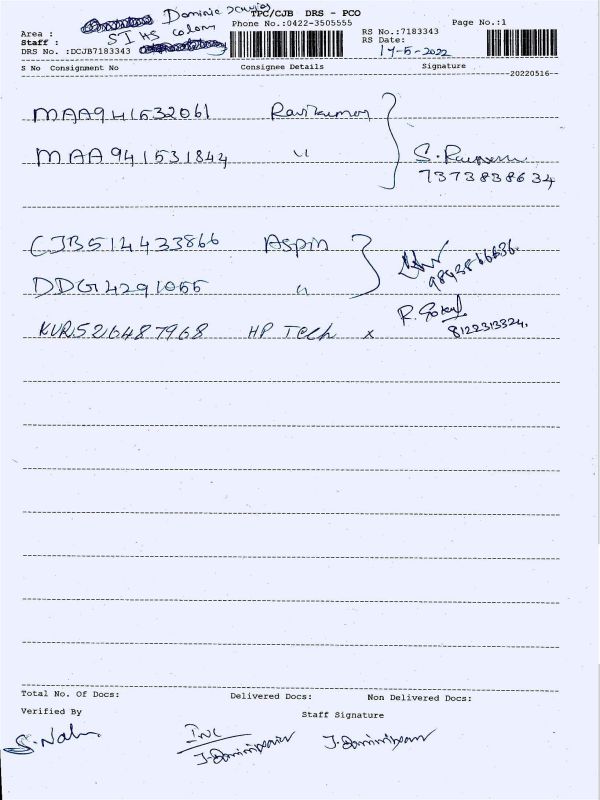 Dominic
TPC/CJB DRS - PCO
Area :
SIHS colony
Phone No.:0422-3505555
Page No.:1
Staff :
RS No.:7183343
RS Date:
17-5-2022
DRS No. :DCJB7183343
S No Consignment No Consignee Details Signature
20220516
MAA941532061 Ravikumar
MAA941531844 "
S.
7373838634
CJB514433866 Aspin
9843866636.
DDG14291055 "
R. Gokul
KUR526487968 HP Tech x
8122313324.
Total No. Of Docs: Delivered Docs: Non Delivered Docs:
Verified By Staff Signature